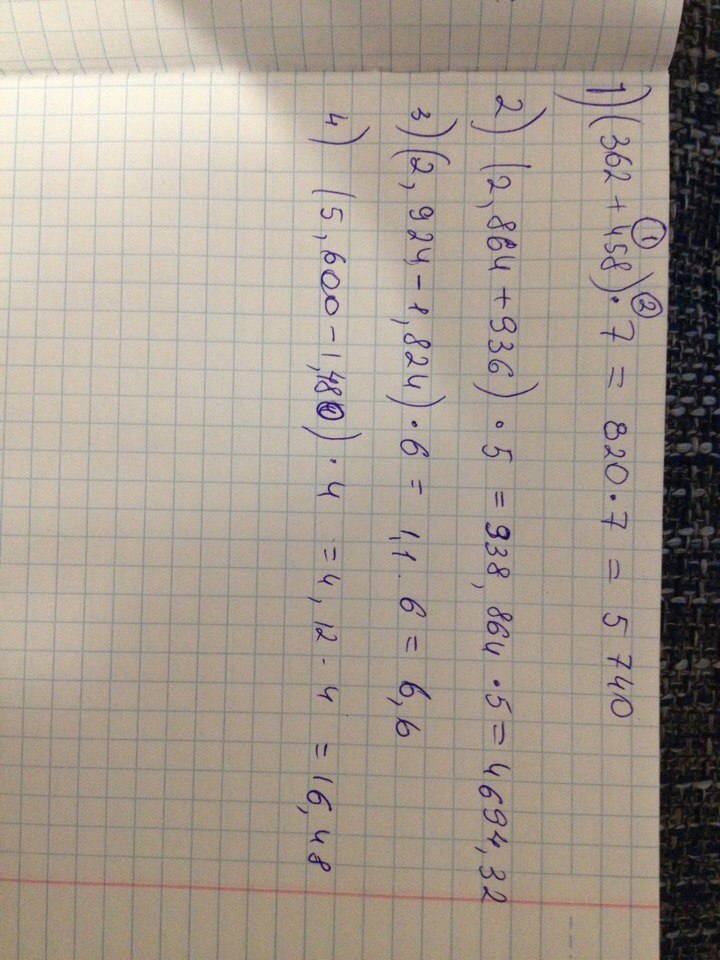 1) (362 + 458) · 7 = 820 · 7 = 5 740
① ②
2) (2,864 + 936) · 5 = 938,864 · 5 = 4694,32
3) (2,924 - 1,824) · 6 = 1,1 · 6 = 6,6
4) (5,600 - 1,480) · 4 = 4,12 · 4 = 16,48